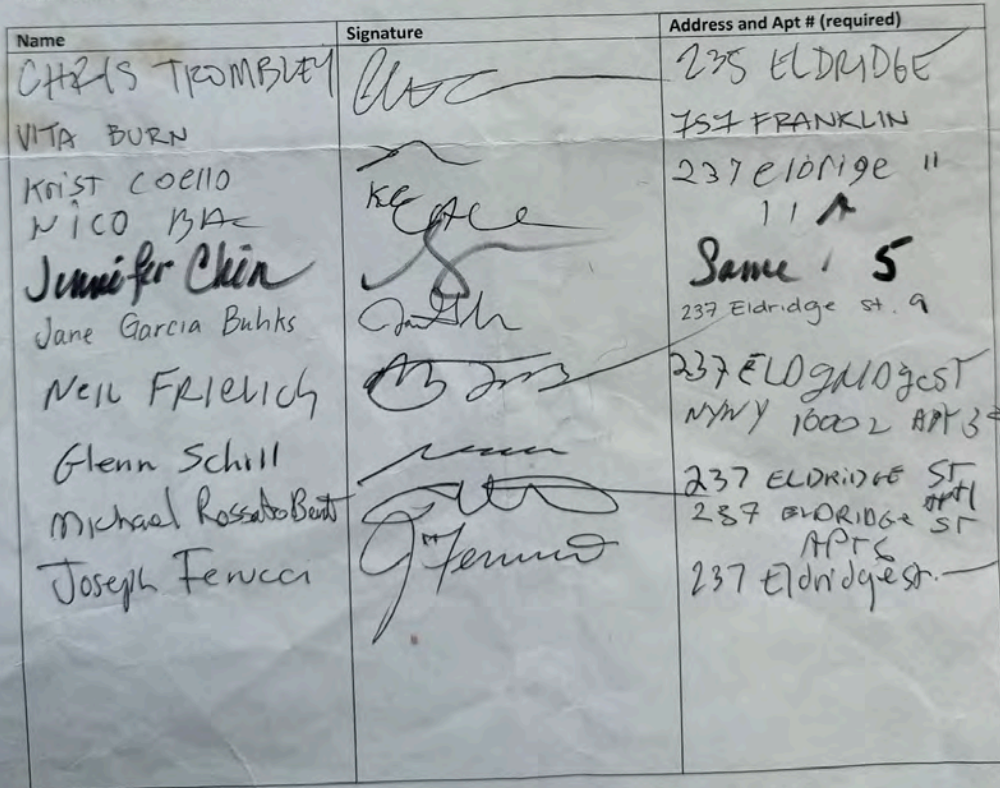 Name Signature Address and Apt # (required)
CHRIS TROMBLEY 235 ELDRIDGE
VITA BURN 757 FRANKLIN
Krist Coello KC 237 elbrige "
NICO 11 A
Jennifer Chin Same 5
Jane Garcia Buhks 237 Eldridge st. 9
NEIL FRIELICH 237 ST
NYNY 10002 APT 3
Glenn Schill 237 ELDRIDGE ST
apt 1
Michael 237 ELDRIDGE ST
APT 6
Joseph Ferucci J Ferucci 237 Eldridge st.